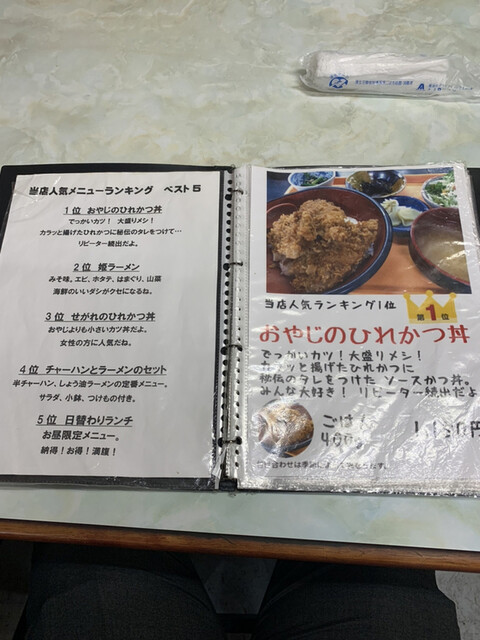 当店人気メニューランキング ベスト5
1位 おやじのひれかつ丼
でっかいカツ! 大盛りメシ!
カラッと揚げたひれかつに秘伝のタレをつけて…
リピーター続出だよ。
2位 姫ラーメン
みそ味。エビ、ホタテ、はまぐり、山菜
海鮮のいいダシがクセになるね。
3位 せがれのひれかつ丼
おやじよりも小さいカツ丼だよ。
女性の方に人気だね。
4位 チャーハンとラーメンのセット
半チャーハン、しょう油ラーメンの定番メニュー。
サラダ、小鉢、つけもの付き。
5位 日替わりランチ
お昼限定メニュー。
納得!お得!満腹!
当店人気ランキング1位
第1位
おやじのひれかつ丼
でっかいカツ!大盛りメシ!
カラッと揚げたひれかつに
秘伝のタレをつけた ソースかつ丼。
みんな大好き! リピーター続出だよ
ごはん
400g
円